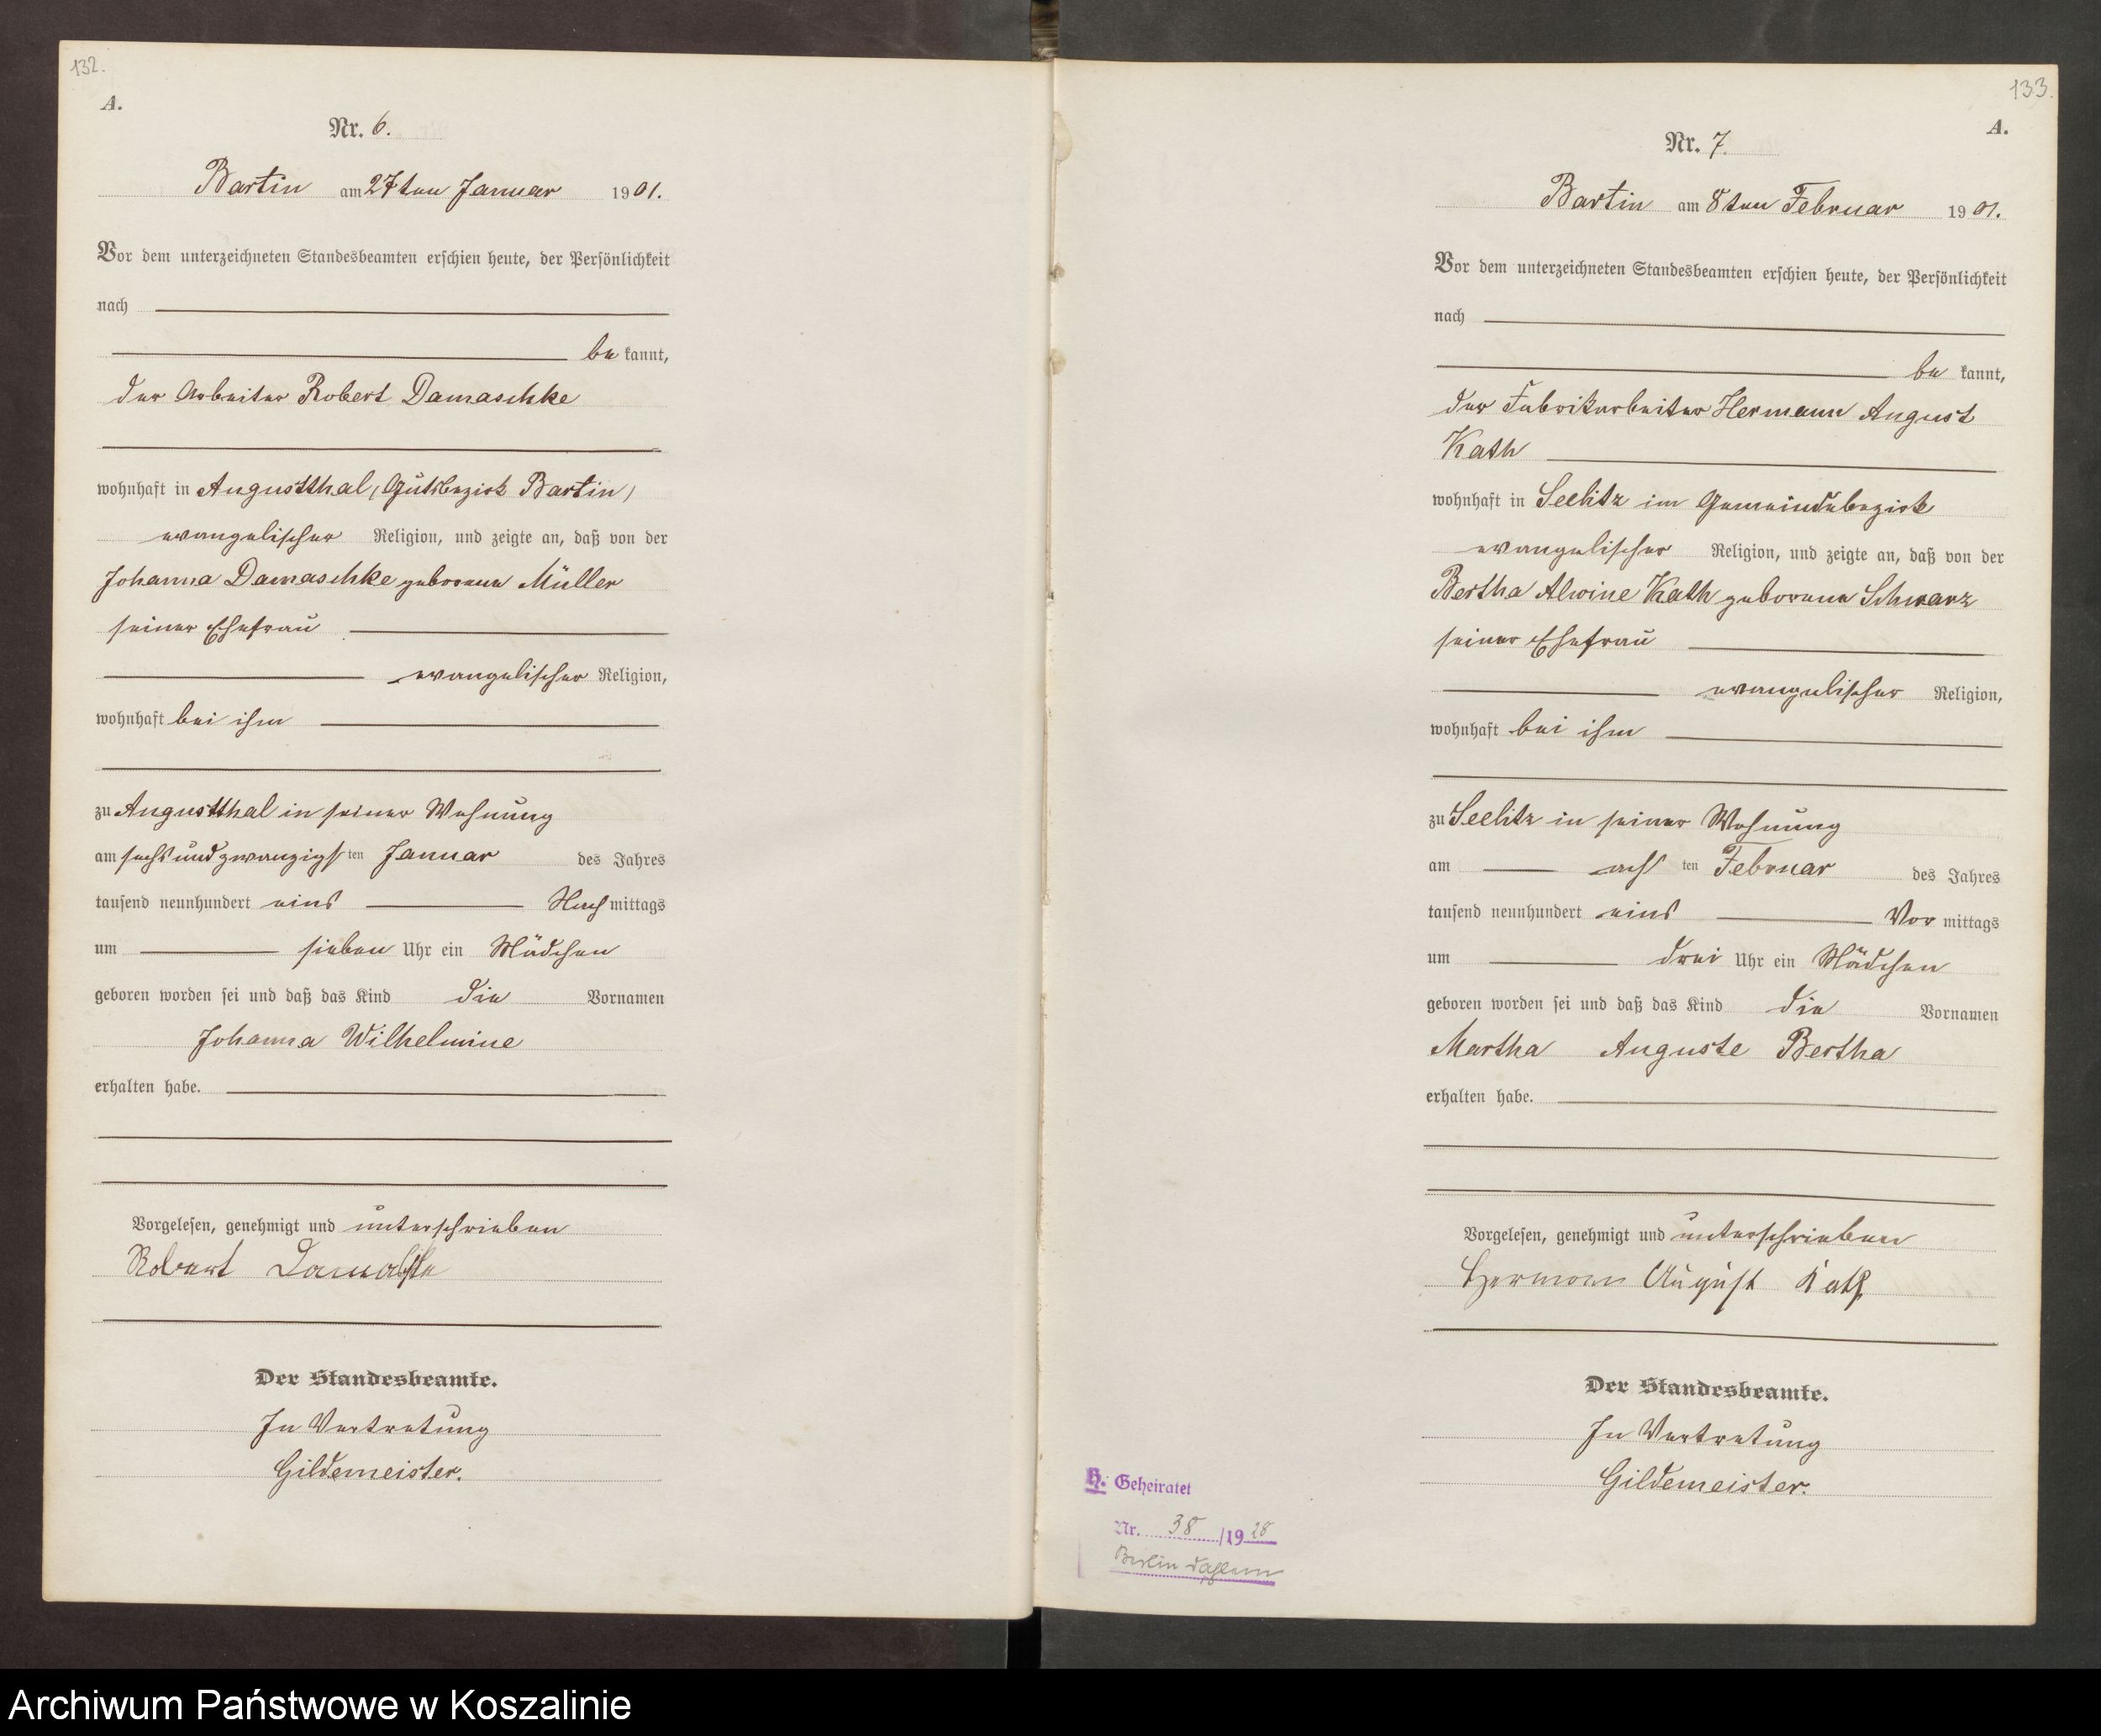 132.
A.
Nr. 6.
Bartin am 27ten Januar 1901.
Vor dem unterzeichneten Standesbeamten erschien heute, der Persönlichkeit
nach
be kannt,
der Arbeiter Robert Damaschke
wohnhaft in Augustthal, (Gutsbezirk Bartin)
evangelischer Religion, und zeigte an, daß von der
Johanna Damaschke geborene Müller
seiner Ehefrau
evangelischer Religion,
wohnhaft bei ihm
zu Augustthal in seiner Wohnung
am sechsundzwanzigsten Januar des Jahres
tausend neunhundert eins Nach mittags
um sieben Uhr ein Mädchen
geboren worden sei und daß das Kind die Vornamen
Johanna Wilhelmine
erhalten habe.
Vorgelesen, genehmigt und unterschrieben
Robert Damaschke
Der Standesbeamte.
In Vertretung
Gildemeister.
133.
A.
Nr. 7.
Bartin am 8ten Februar 1901.
Vor dem unterzeichneten Standesbeamten erschien heute, der Persönlichkeit
nach
be kannt,
der Fabrikarbeiter Hermann August
Kath
wohnhaft in Seelitz im Gemeindebezirk
evangelischer Religion, und zeigte an, daß von der
Bertha Alwine Kath geborene Schwarz
seiner Ehefrau
evangelischer Religion,
wohnhaft bei ihm
zu Seelitz in seiner Wohnung
am acht ten Februar des Jahres
tausend neunhundert eins Vor mittags
um drei Uhr ein Mädchen
geboren worden sei und daß das Kind die Vornamen
Martha Auguste Bertha
erhalten habe.
Vorgelesen, genehmigt und unterschrieben
Hermann August Kath
Der Standesbeamte.
In Vertretung
Gildemeister.
H. Geheiratet
Nr. 38 /1928
Berlin Dahlem
Archiwum Państwowe w Koszalinie